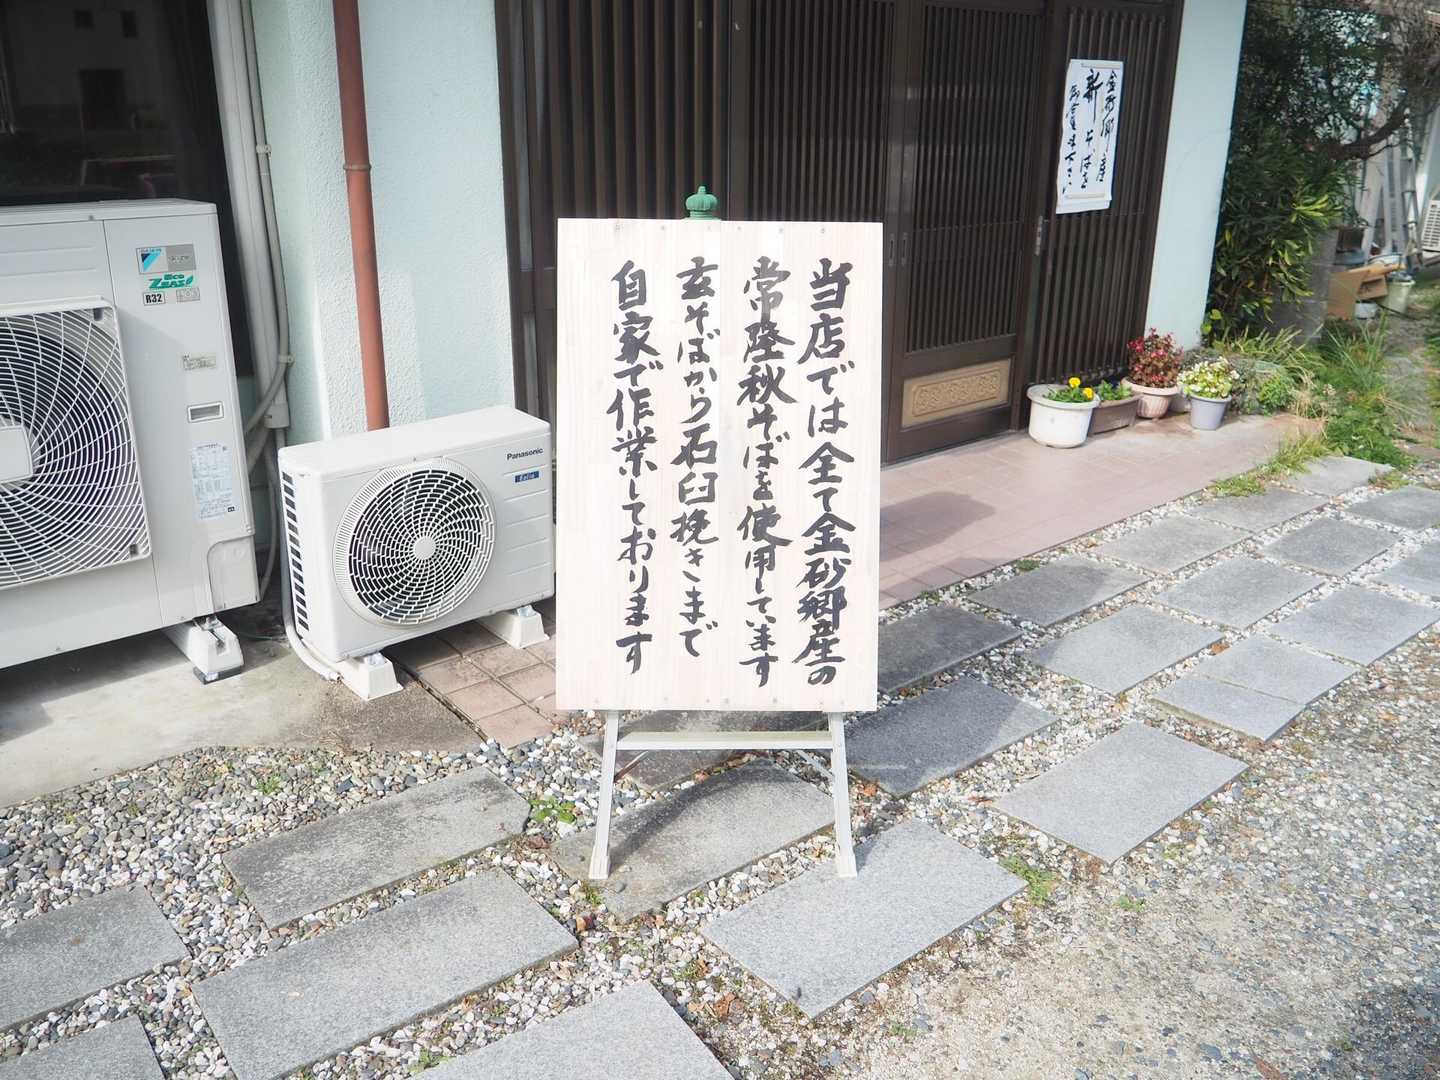 当店では全て金砂郷産の
常陸秋そばを使用しています
玄そばから石臼挽きまで
自家で作業しております
金砂郷産
新そばを
御賞味下さい
DAIKIN
Eco
ZEAS
R32
Panasonic
Eolia